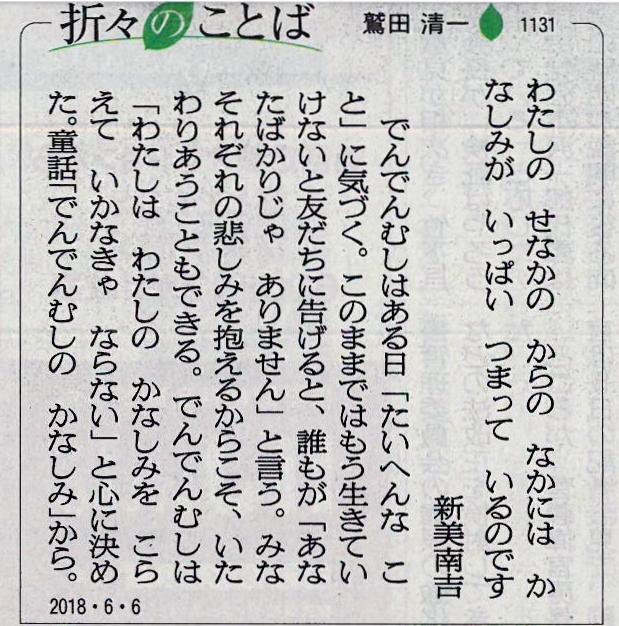 折々のことば
鷲田 清一
1131
わたしの せなかの からの なかには か
なしみが いっぱい つまって いるのです
新美南吉
でんでんむしはある日「たいへんな こ
と」に気づく。このままではもう生きてい
けないと友だちに告げると、誰もが「あな
たばかりじゃ ありません」と言う。みな
それぞれの悲しみを抱えるからこそ、いた
わりあうこともできる。でんでんむしは
「わたしは わたしの かなしみを こら
えて いかなきゃ ならない」と心に決め
た。童話「でんでんむしの かなしみ」から。
2018・6・6